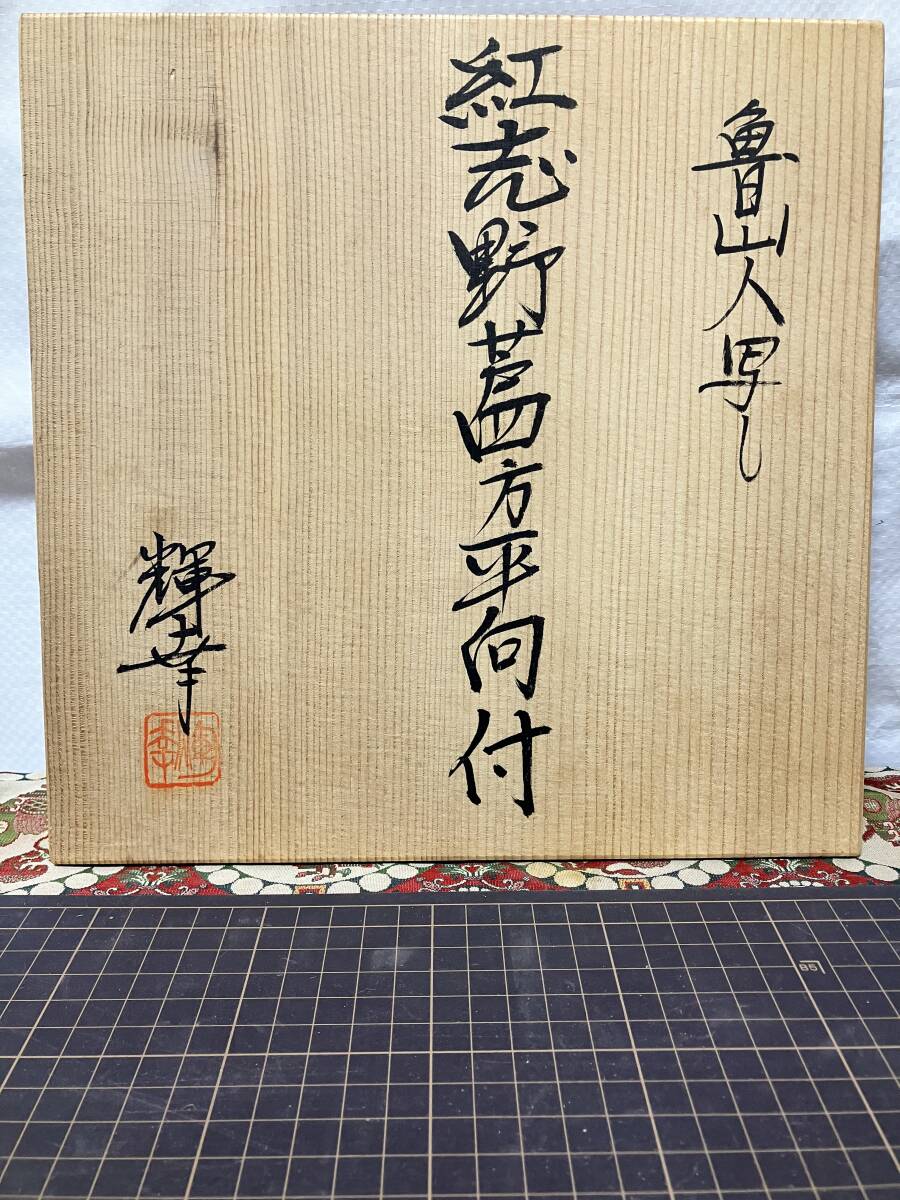 魯山人写し
紅志野芦四方平向付
輝幸
輝幸
B5